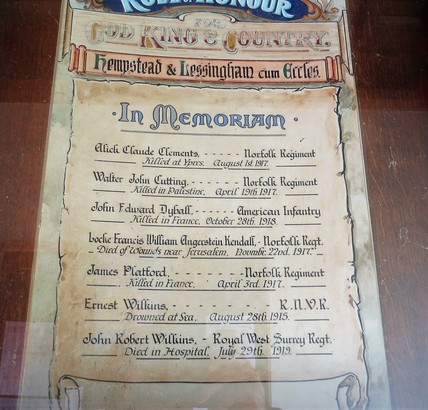 ROLL of HONOUR
FOR
GOD KING & COUNTRY.
Hempstead & Lessingham cum Eccles.
·IN MEMORIAM·
Alick Claude Clements, - - - - - - Norfolk Regiment
Killed at Ypres, August 1st 1917.
Walter John Cutting, - - - - - - Norfolk Regiment
Killed in Palestine, April 19th 1917.
John Edward Dyball, - - - - - American Infantry
Killed in France, October 28th 1918.
Locke Francis William Angerstein Kendall, - Norfolk Regt.
Died of Wounds near Jerusalem, Novmbr. 22nd. 1917.
James Plattford, - - - - - - - - Norfolk Regiment
Killed in France, April 3rd. 1917.
Ernest Wilkins, - - - - - - - - R.N.V.R.
Drowned at Sea, August 28th 1915.
John Robert Wilkins, - Royal West Surrey Regt.
Died in Hospital, July 29th 1919.